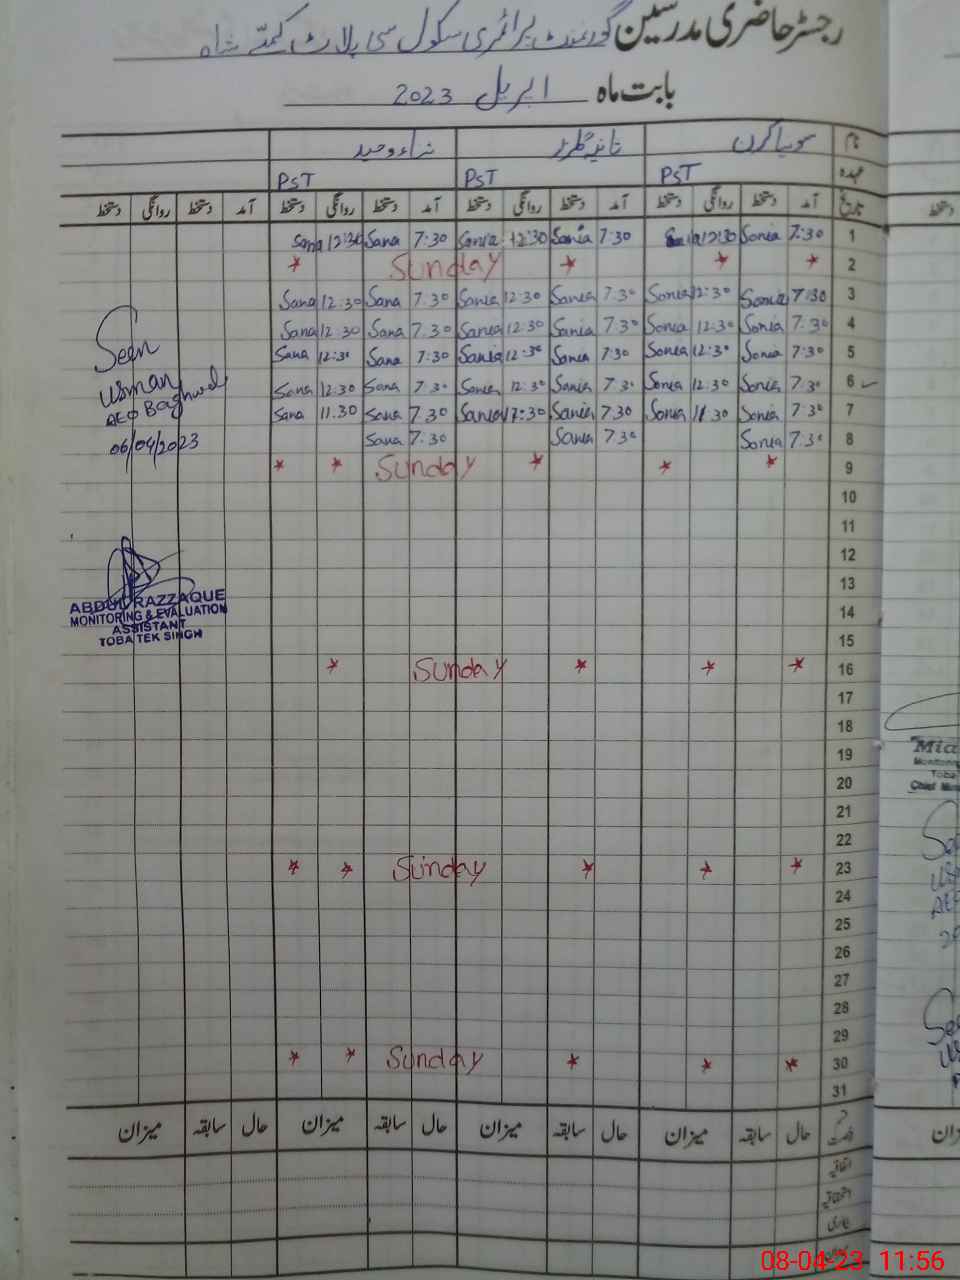 رجسٹر حاضری مدرسین گورنمنٹ پرائمری سکول سی پلاٹ
بابت ماہ اپریل 2023
نام سونیا کرن ثانیہ گلزار ثناء وحید
عہدہ PST PST PST
تاریخ آمد دستخط روانگی دستخط آمد دستخط روانگی دستخط آمد دستخط روانگی دستخط آمد دستخط روانگی دستخط
1 7:30 Sonia 12:30 Sonia 7:30 Sania 12:30 Sania 7:30 Sana 12:30 Sana
2 * * * Sunday *
3 7:30 Sonia 12:30 Sonia 7:30 Sania 12:30 Sania 7:30 Sana 12:30 Sana
4 7:30 Sonia 12:30 Sonia 7:30 Sania 12:30 Sania 7:30 Sana 12:30 Sana
5 7:30 Sonia 12:30 Sonia 7:30 Sania 12:30 Sania 7:30 Sana 12:30 Sana
6 7:30 Sonia 12:30 Sonia 7:30 Sania 12:30 Sania 7:30 Sana 12:30 Sana
7 7:30 Sonia 11:30 Sonia 7:30 Sania 11:30 Sania 7:30 Sana 11.30 Sana
8 7:30 Sonia 7:30 Sania 7:30 Sana
9 * * * Sunday * *
10
11
12
13
14
15
16 * * * Sunday *
17
18
19
20
21
22
23 * * * Sunday * *
24
25
26
27
28
29
30 * * * Sunday * *
31
حال سابقہ میزان حال سابقہ میزان حال سابقہ میزان حال سابقہ میزان
اتفاقیہ
استحقاقیہ
بیماری
Seen
Usman
AEO
06/04/2023
ABDUL RAZZAQUE
MONITORING & EVALUATION
ASSISTANT
TOBA TEK SINGH
08-04-23 11:56